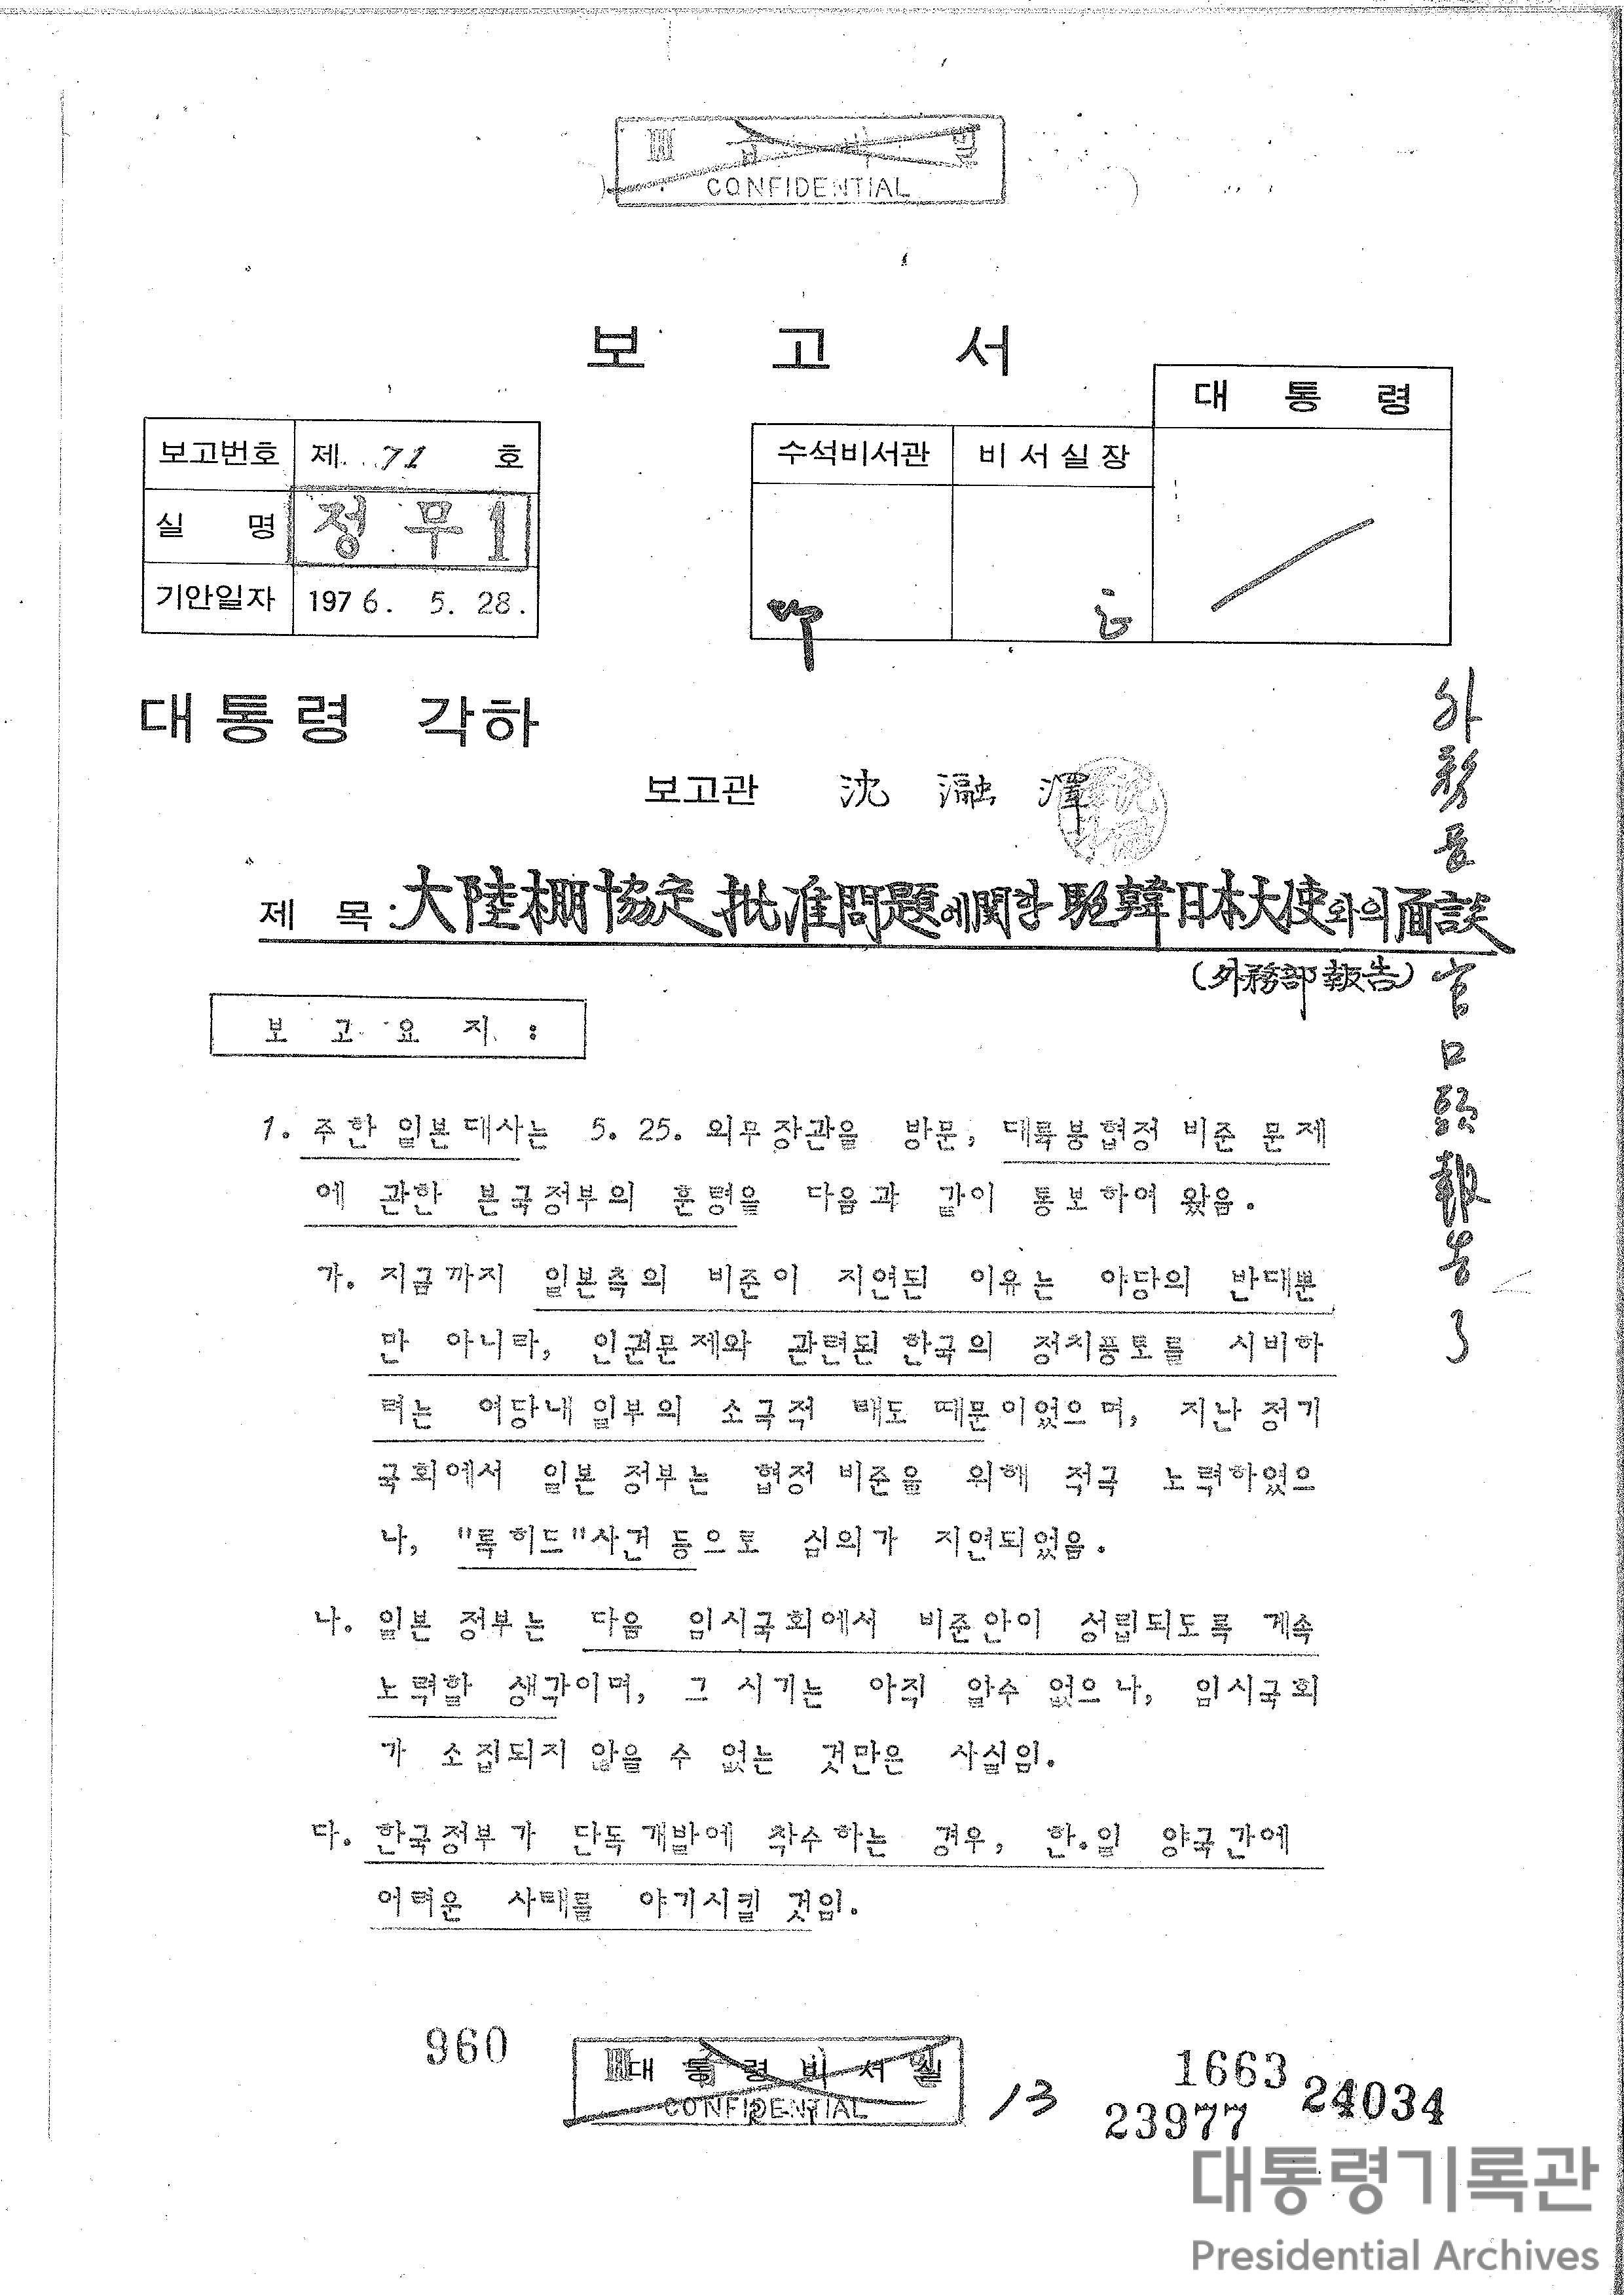 III 급 비 밀
CONFIDENTIAL
보 고 서
보고번호 제 71 호
실 명 정무1
기안일자 1976. 5. 28.
수석비서관 비서실장 대통령
대통령 각하
보고관 沈 瀜 澤
제 목 : 大陸棚協定 批准問題에 關한 駐韓日本大使와의 面談
(外務部 報告)
外務長官口頭報告了
보 고 요 지 :
1. 주한 일본대사는 5. 25. 외무장관을 방문, 대륙붕협정 비준 문제
에 관한 본국정부의 훈령을 다음과 같이 통보하여 왔음.
가. 지금까지 일본측의 비준이 지연된 이유는 야당의 반대뿐
만 아니라, 인권문제와 관련된 한국의 정치풍토를 시비하
려는 여당내 일부의 소극적 태도 때문이었으며, 지난 정기
국회에서 일본 정부는 협정 비준을 위해 적극 노력하였으
나, "록히드"사건 등으로 심의가 지연되었음.
나. 일본 정부는 다음 임시국회에서 비준안이 성립되도록 계속
노력할 생각이며, 그 시기는 아직 알수 없으나, 임시국회
가 소집되지 않을 수 없는 것만은 사실임.
다. 한국정부가 단독개발에 착수하는 경우, 한.일 양국간에
어려운 사태를 야기시킬 것임.
960
대통령비서실
CONFIDENTIAL
13
1663
23977
24034
대통령기록관
Presidential Archives